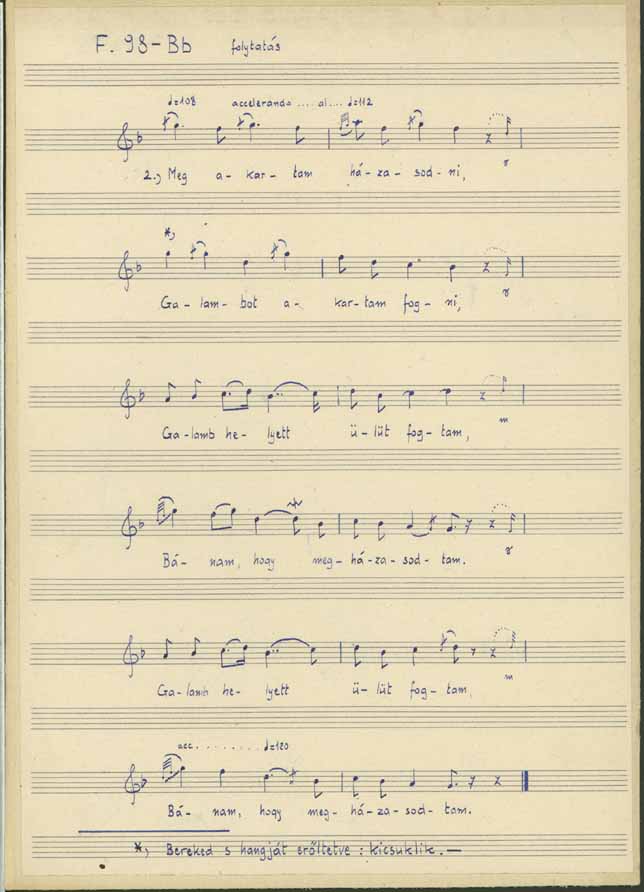 F. 98-Bb folytatás
♩=108 accelerando .... al .... ♩=112
2., Meg a- kar- tam há- za- sod- ni,
*,
Ga- lam- bot a- kar- tam fog- ni,
Ga- lamb he- lyett ü- lüt fog- tam,
Bá- nam, hogy meg- há- za- sod- tam.
Ga- lamb he- lyett ü- lüt fog- tam
acc. ......... ♩=120
Bá- nam, hogy meg- há- za- sod- tam.
*, Bereked s hangját erőltetve : kicsuklik. —